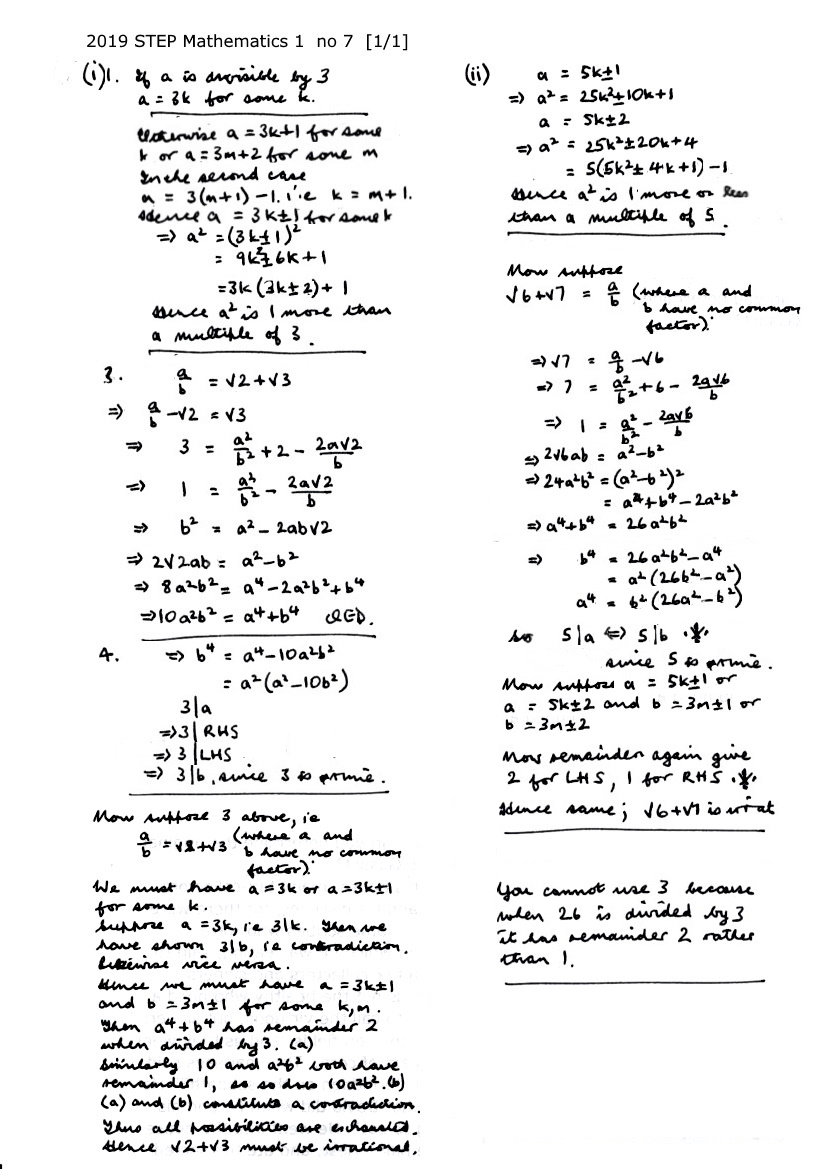 2019 STEP Mathematics 1 no 7 [1/1]
(i) 1. If a is divisible by 3
a = 3k for some k.
Otherwise a = 3k+1 for some
k or a = 3m+2 for some m
In the second case
a = 3(m+1) - 1. i.e k = m+1.
Hence a = 3k±1 for some k
⇒ a² = (3k±1)²
= 9k²±6k+1
= 3k(3k±2)+1
Hence a² is 1 more than
a multiple of 3.
3. a/b = √2+√3
⇒ a/b - √2 = √3
⇒ 3 = a²/b² + 2 - 2a√2/b
⇒ 1 = a²/b² - 2a√2/b
⇒ b² = a² - 2ab√2
⇒ 2√2ab = a²-b²
⇒ 8a²b² = a⁴-2a²b²+b⁴
⇒ 10a²b² = a⁴+b⁴ QED.
4. ⇒ b⁴ = a⁴-10a²b²
= a²(a²-10b²)
3|a
⇒ 3| RHS
⇒ 3 | LHS
⇒ 3|b, since 3 is prime.
Now suppose 3 above, ie
a/b = √2+√3 (where a and
b have no common
factor).
We must have a = 3k or a = 3k±1
for some k.
Suppose a = 3k, ie 3|k. Then we
have shown 3|b, ie contradiction.
Likewise vice versa.
Hence we must have a = 3k±1
and b = 3m±1 for some k, m.
Then a⁴+b⁴ has remainder 2
when divided by 3. (a)
Similarly 10 and a²b² both have
remainder 1, so so does 10a²b². (b)
(a) and (b) constitute a contradiction.
Thus all possibilities are exhausted.
Hence √2+√3 must be irrational.
(ii) a = 5k±1
⇒ a² = 25k²±10k+1
a = 5k±2
⇒ a² = 25k²±20k+4
= 5(5k²±4k+1)-1
Hence a² is 1 more or less
than a multiple of 5.
Now suppose
√6+√7 = a/b (where a and
b have no common
factor).
⇒ √7 = a/b - √6
⇒ 7 = a²/b² + 6 - 2a√6/b
⇒ 1 = a²/b² - 2a√6/b
⇒ 2√6ab = a²-b²
⇒ 24a²b² = (a²-b²)²
= a⁴+b⁴-2a²b²
⇒ a⁴+b⁴ = 26a²b²
⇒ b⁴ = 26a²b²-a⁴
= a²(26b²-a²)
a⁴ = b²(26a²-b²)
so 5|a ⇔ 5|b
since 5 is prime.
Now suppose a = 5k±1 or
a = 5k±2 and b = 3m±1 or
b = 3m±2
Now remainder again give
2 for LHS, 1 for RHS
Hence same; √6+√7 is irrat
You cannot use 3 because
when 26 is divided by 3
it has remainder 2 rather
than 1.